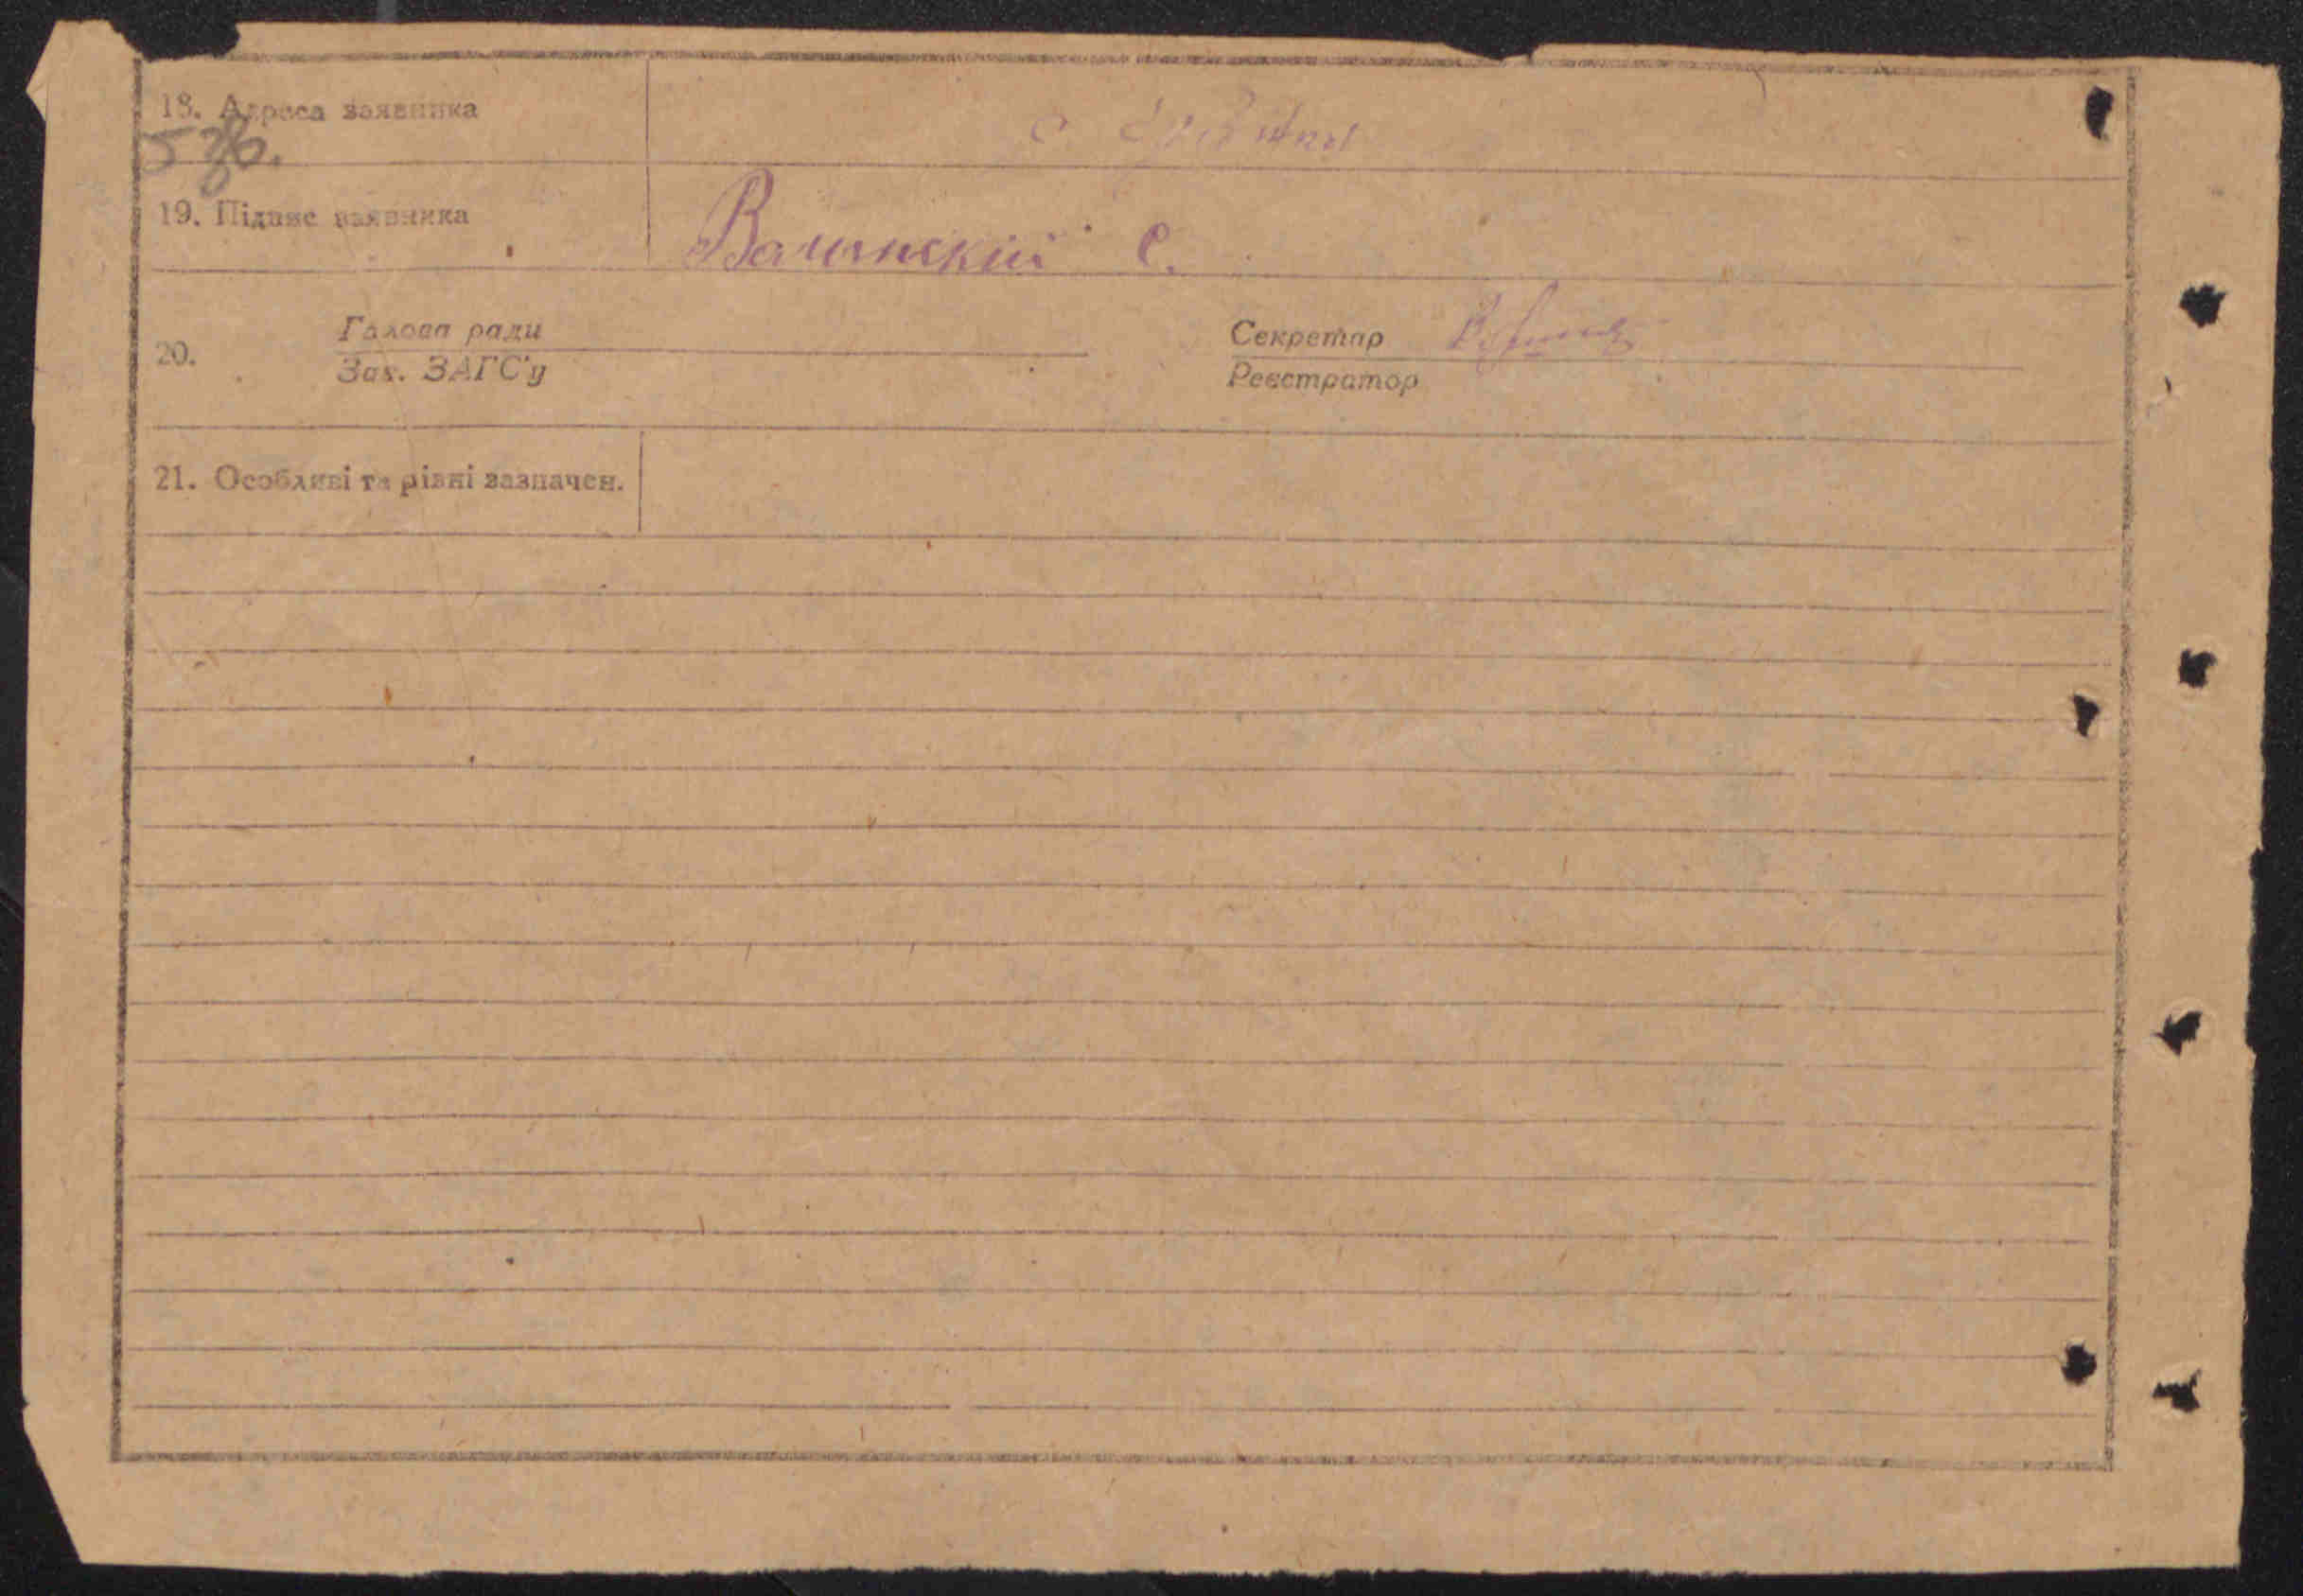 18. Адреса заявника с.
19. Підпис заявника Валинский С.
20. Голова ради Секретар
Зав. ЗАГС'у Реєстратор
21. Особливі та різні зазначен.